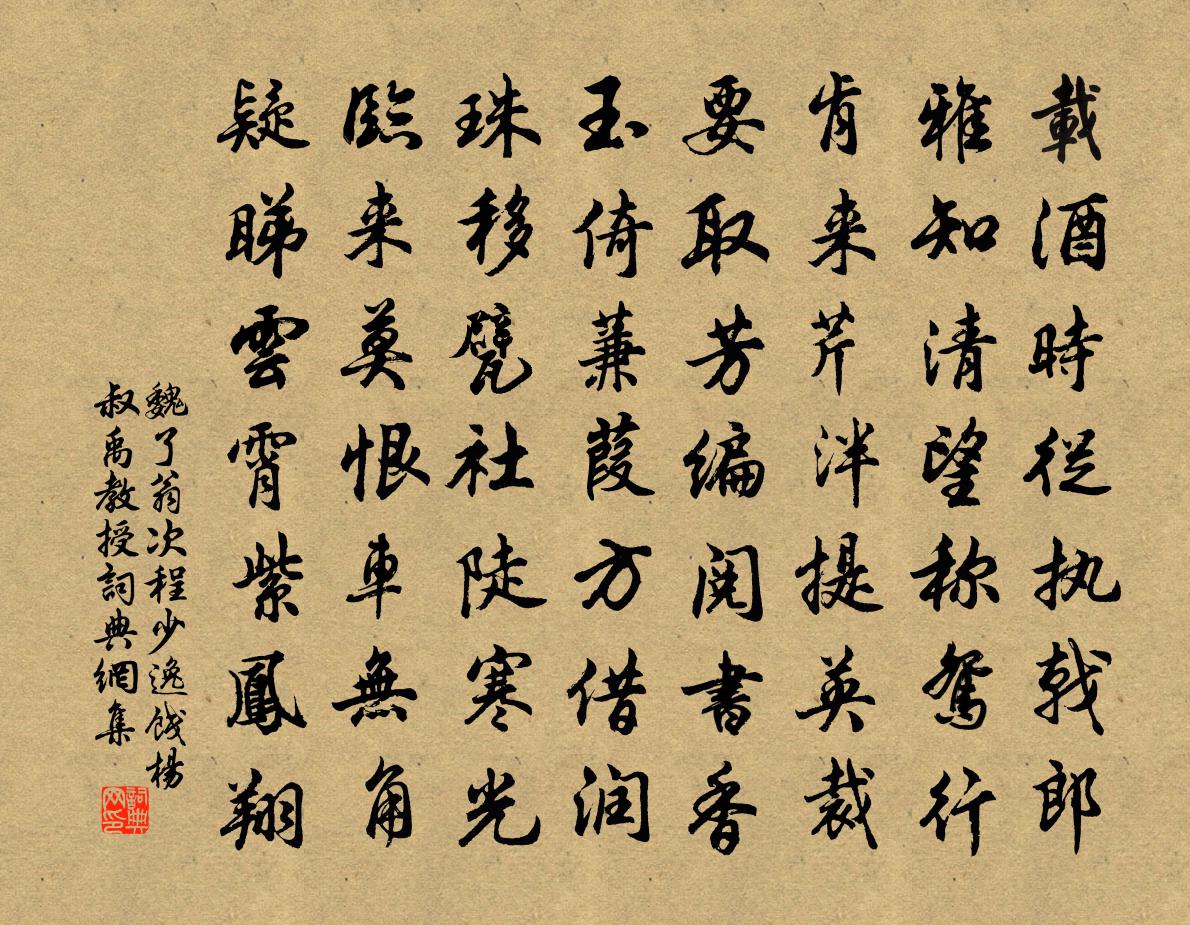 載酒時從执戟郎
雅知清望称鴛行
肯来芹泮提英裁
要取芳编閱書香
玉倚蒹葭方借润
珠移甓社陡寒光
臨来莫恨車無角
疑睇雲霄紫鳳翔
魏了翁次程少逸餞楊
叔禹教授詞典網集
詞典网印